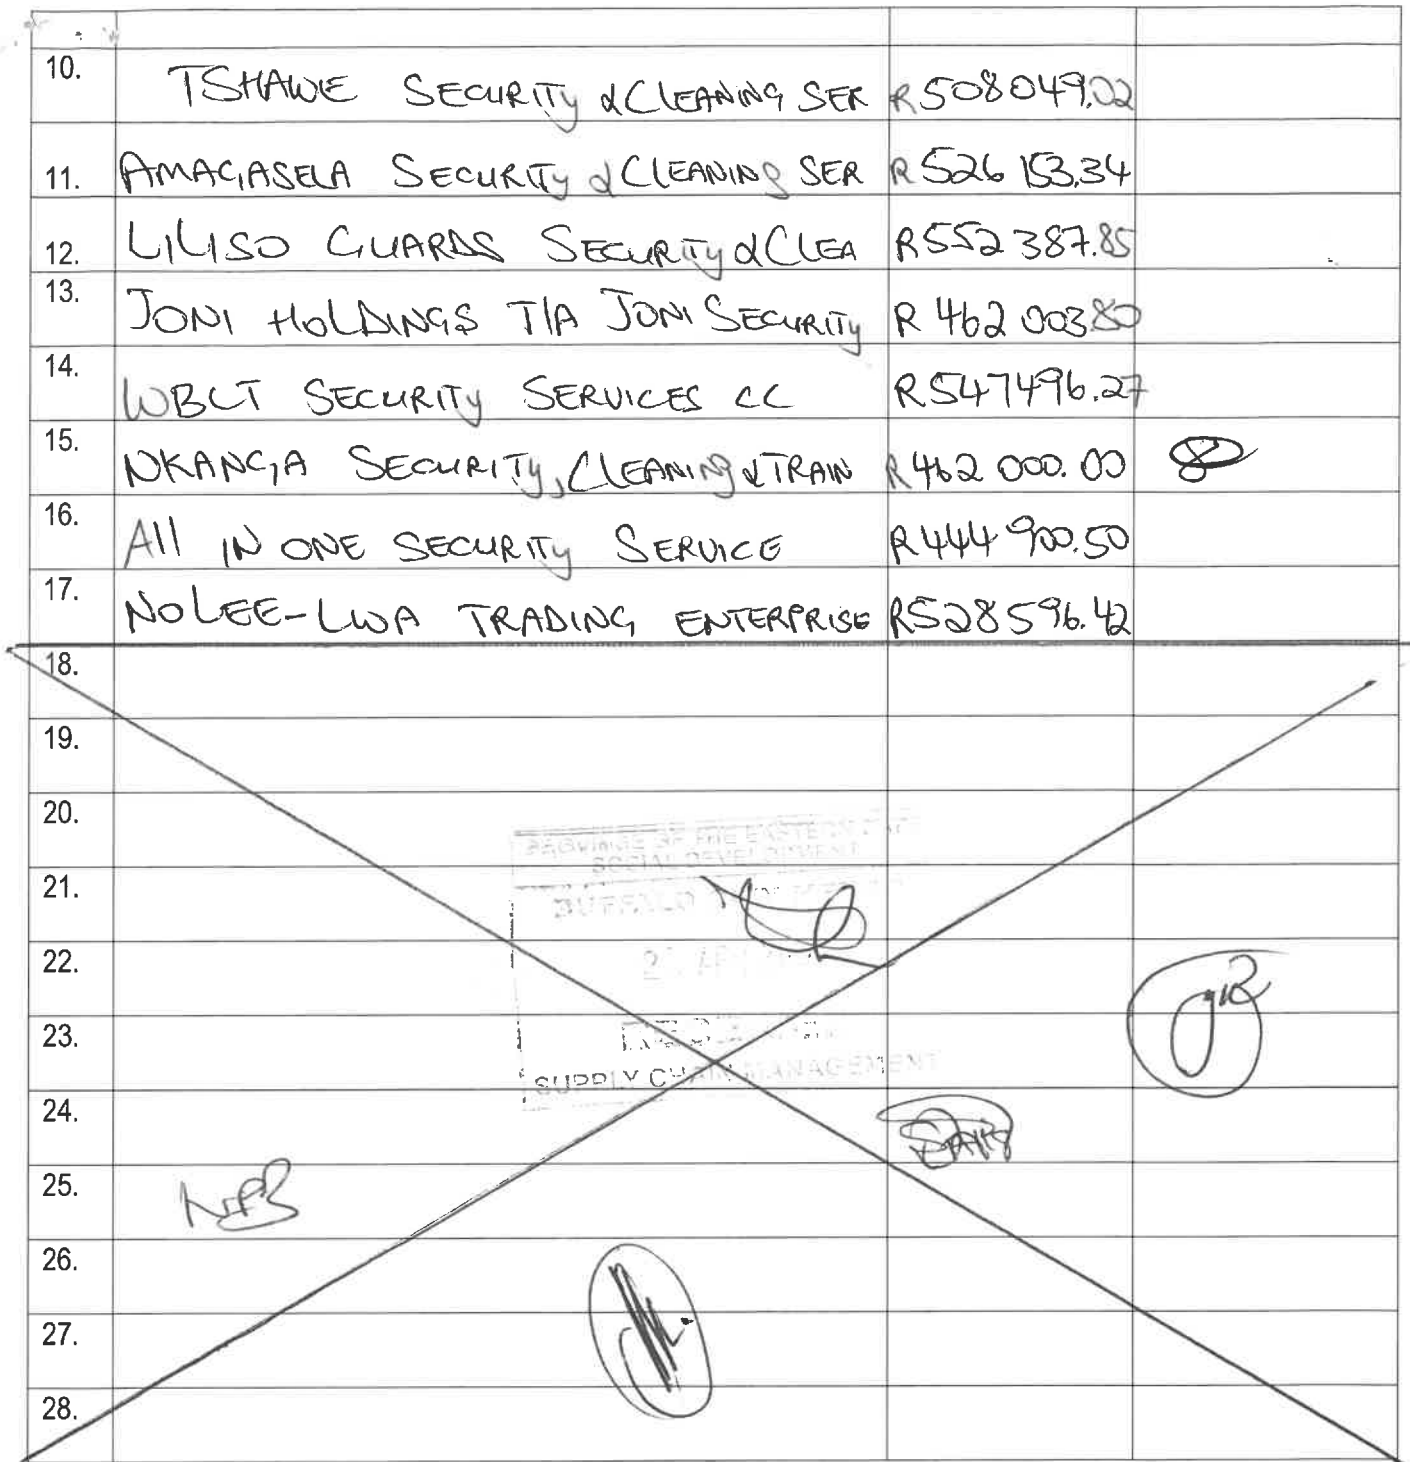 10. TSHAWE SECURITY & CLEANING SER R508049.02
11. AMAGASELA SECURITY & CLEANING SER R526 153.34
12. LILISO GUARDS SECURITY & CLEA R552 387.85
13. JONI HOLDINGS T/A JONI SECURITY R 462 003.80
14. WBCT SECURITY SERVICES CC R547496.27
15. NKANGA SECURITY, CLEANING & TRAIN R462 000.00
16. All IN ONE SECURITY SERVICE R444 900.50
17. NOLEE-LWA TRADING ENTERPRISE R528596.42
18.
19.
20.
PROVINCE OF THE EASTERN CAPE
SOCIAL DEVELOPMENT
21.
BUFFALO
22.
23.
SUPPLY CHAIN MANAGEMENT
24.
25.
26.
27.
28.